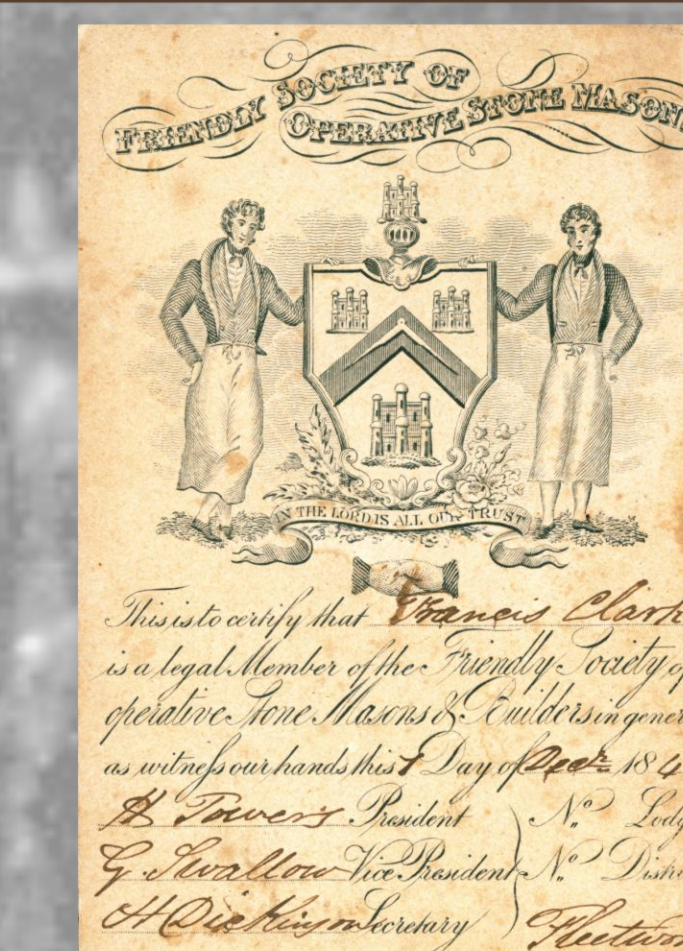 FRIENDLY SOCIETY OF OPERATIVE STONE MASON
IN THE LORD IS ALL OUR TRUST
This is to certify that Francis Clark
is a legal Member of the Friendly Society of
operative Stone Masons & Builders in gener
as witness our hands this 1 Day of Decr 184
H Towers President No Lodg
G. Swallow Vice President No Distri
H Dickinson Secretary Fleetwo